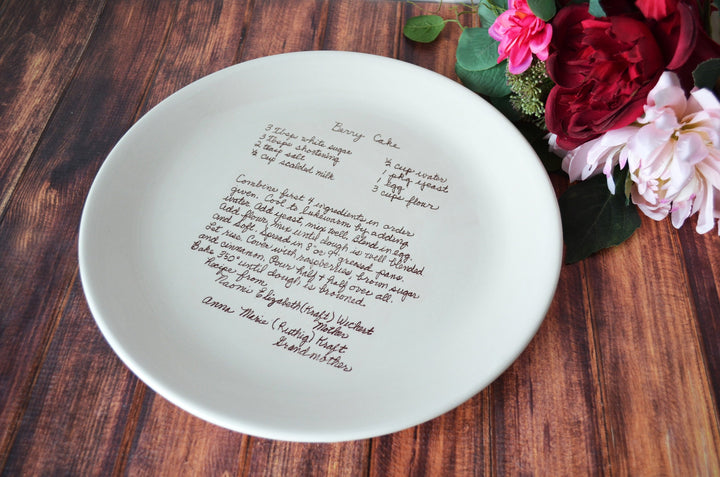 Berry Cake
3 Tbsps white sugar
3 Tbsps shortening
2 teasp salt
½ cup scalded milk
½ cup water
1 pkg yeast
1 egg
3 cups flour
Combine first 4 ingredients in order
given. Cool to lukewarm by adding
water. Add yeast, mix well. Blend in egg.
Add flour, mix until dough is well blended
and soft. Spread in 8" or 9" greased pans.
Let rise. Cover with raspberries, brown sugar
and cinnamon. Pour half & half over all.
Bake 350° until dough is browned.
Recipe from
Naomi Elizabeth (Kraft) Wechert
Mother
Anna Marie (Ruthig) Kraft
Grandmother